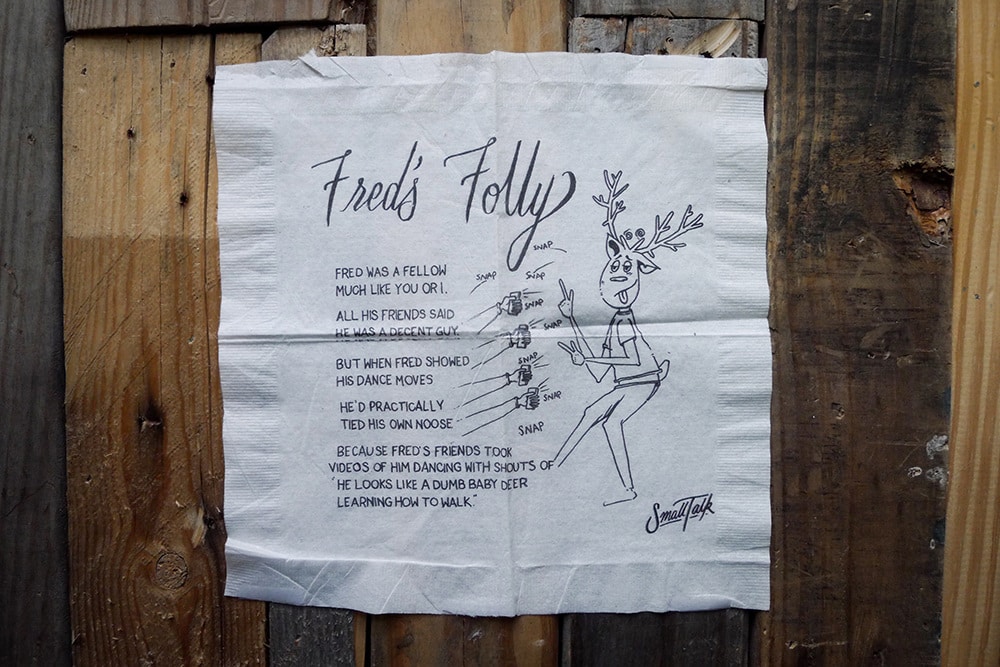 Fred's Folly
FRED WAS A FELLOW
MUCH LIKE YOU OR I.
ALL HIS FRIENDS SAID
HE WAS A DECENT GUY.
BUT WHEN FRED SHOWED
HIS DANCE MOVES
HE'D PRACTICALLY
TIED HIS OWN NOOSE
BECAUSE FRED'S FRIENDS TOOK
VIDEOS OF HIM DANCING WITH SHOUTS OF
"HE LOOKS LIKE A DUMB BABY DEER
LEARNING HOW TO WALK."
SNAP
SNAP
SNAP
SNAP
SNAP
SNAP
SNAP
SNAP
SmallTalk